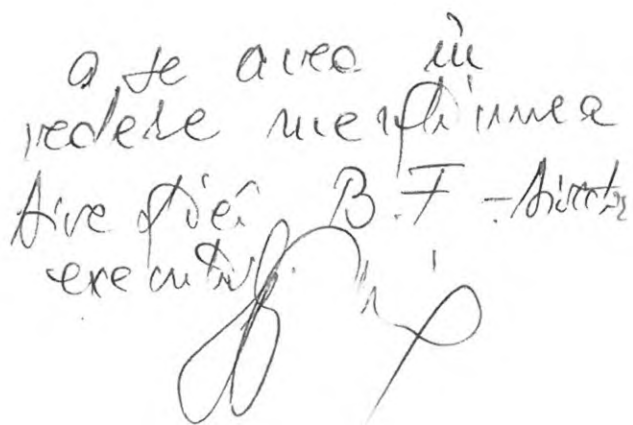 a se avea în
vedere mențiunea
Direcției B.F - Director
executiv